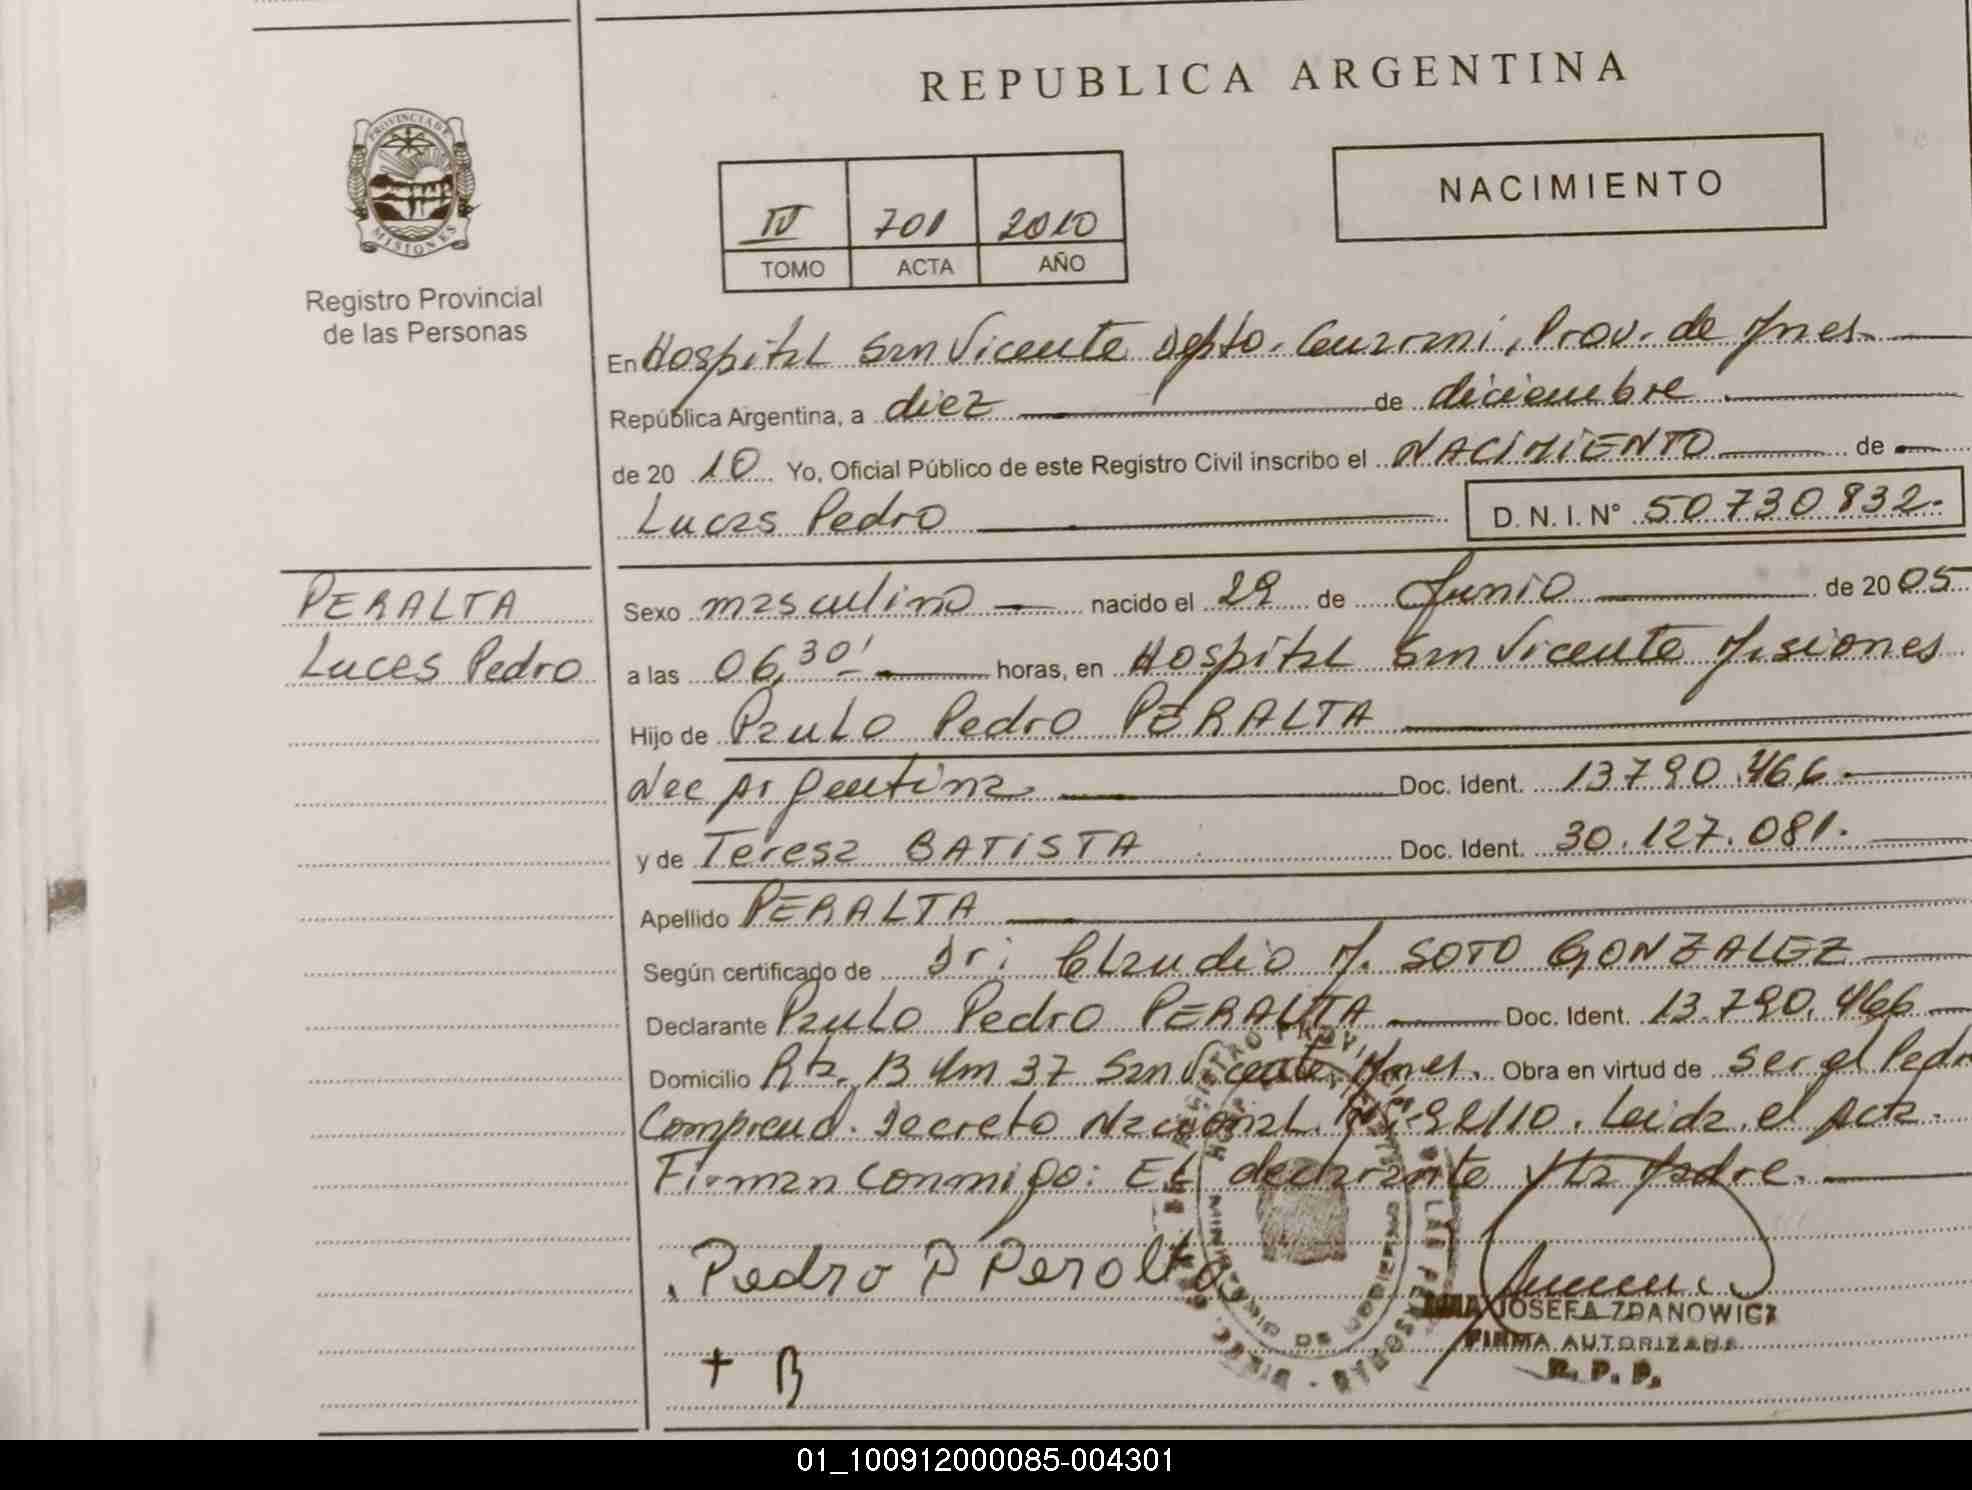 REPUBLICA ARGENTINA
PROVINCIA DE
MISIONES
Registro Provincial
de las Personas
NACIMIENTO
IV 701 2010
TOMO ACTA AÑO
En Hospital San Vicente Dpto. Guarani, Prov. de Mnes.
República Argentina, a diez de diciembre
de 20 10 Yo, Oficial Público de este Registro Civil inscribo el NACIMIENTO de
Lucas Pedro D. N. I. N° 50730832.-
PERALTA
Lucas Pedro
Sexo masculino nacido el 29 de Junio de 20 05
a las 06,30' horas, en Hospital San Vicente Misiones
Hijo de Paulo Pedro PERALTA
Nac Argentina Doc. Ident. 13790.466.
y de Teresa BATISTA Doc. Ident. 30.127.081.
Apellido PERALTA
Según certificado de Dr: Claudio M. SOTO GONZALEZ
Declarante Paulo Pedro PERALTA Doc. Ident. 13.790.466
Domicilio Rta. 13 Km 37 San Vicente Mnes. Obra en virtud de ser el Padr
Comprend. Decreto Nacional. 92/10. Leida el Acta.
Firman conmigo: El declarante y la Madre.
Pedro P Peralta
JOSEFA ZDANOWICZ
FIRMA AUTORIZADA
R. P. P.
+ B
01_100912000085-004301